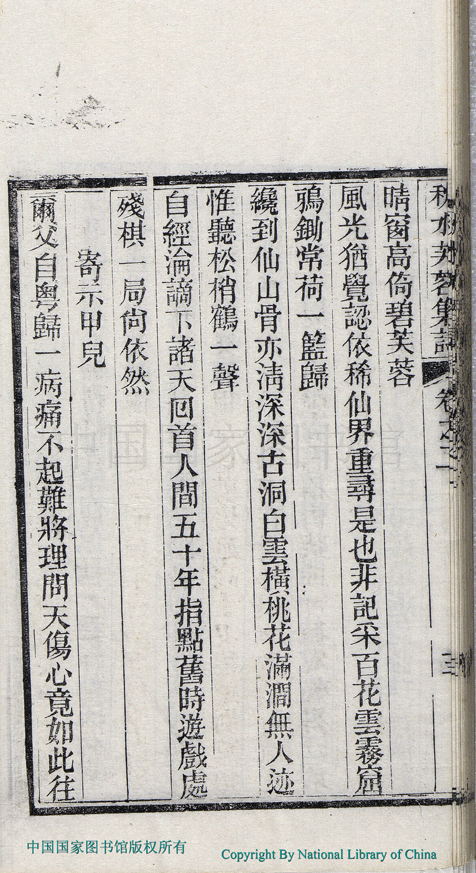 晴窗高倚碧芙蓉
風光猶覺認依稀仙界重尋是也非記采百花雲霧窟
鴉鋤常荷一籃歸
纔到仙山骨亦淸深深古洞白雲橫桃花滿澗無人迹
惟聽松梢鶴一聲
自經淪謫下諸天回首人間五十年指點舊時遊戲處
殘棋一局尙依然
寄示甲兒
爾父自粵歸一病痛不起難將理問天傷心竟如此往
中国国家图书馆版权所有
Copyright By National Library of China